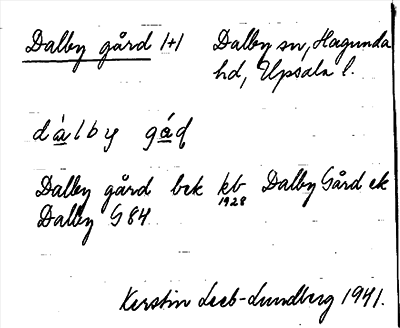 Dalby gård 1+1 Dalby sn, Hagunda
hd, Upsala l.
dálby gáɖ
Dalby gård bek kb 1928 Dalby Gård ek
Dalby G 84
Kerstin Leeb-Lundberg 1941.